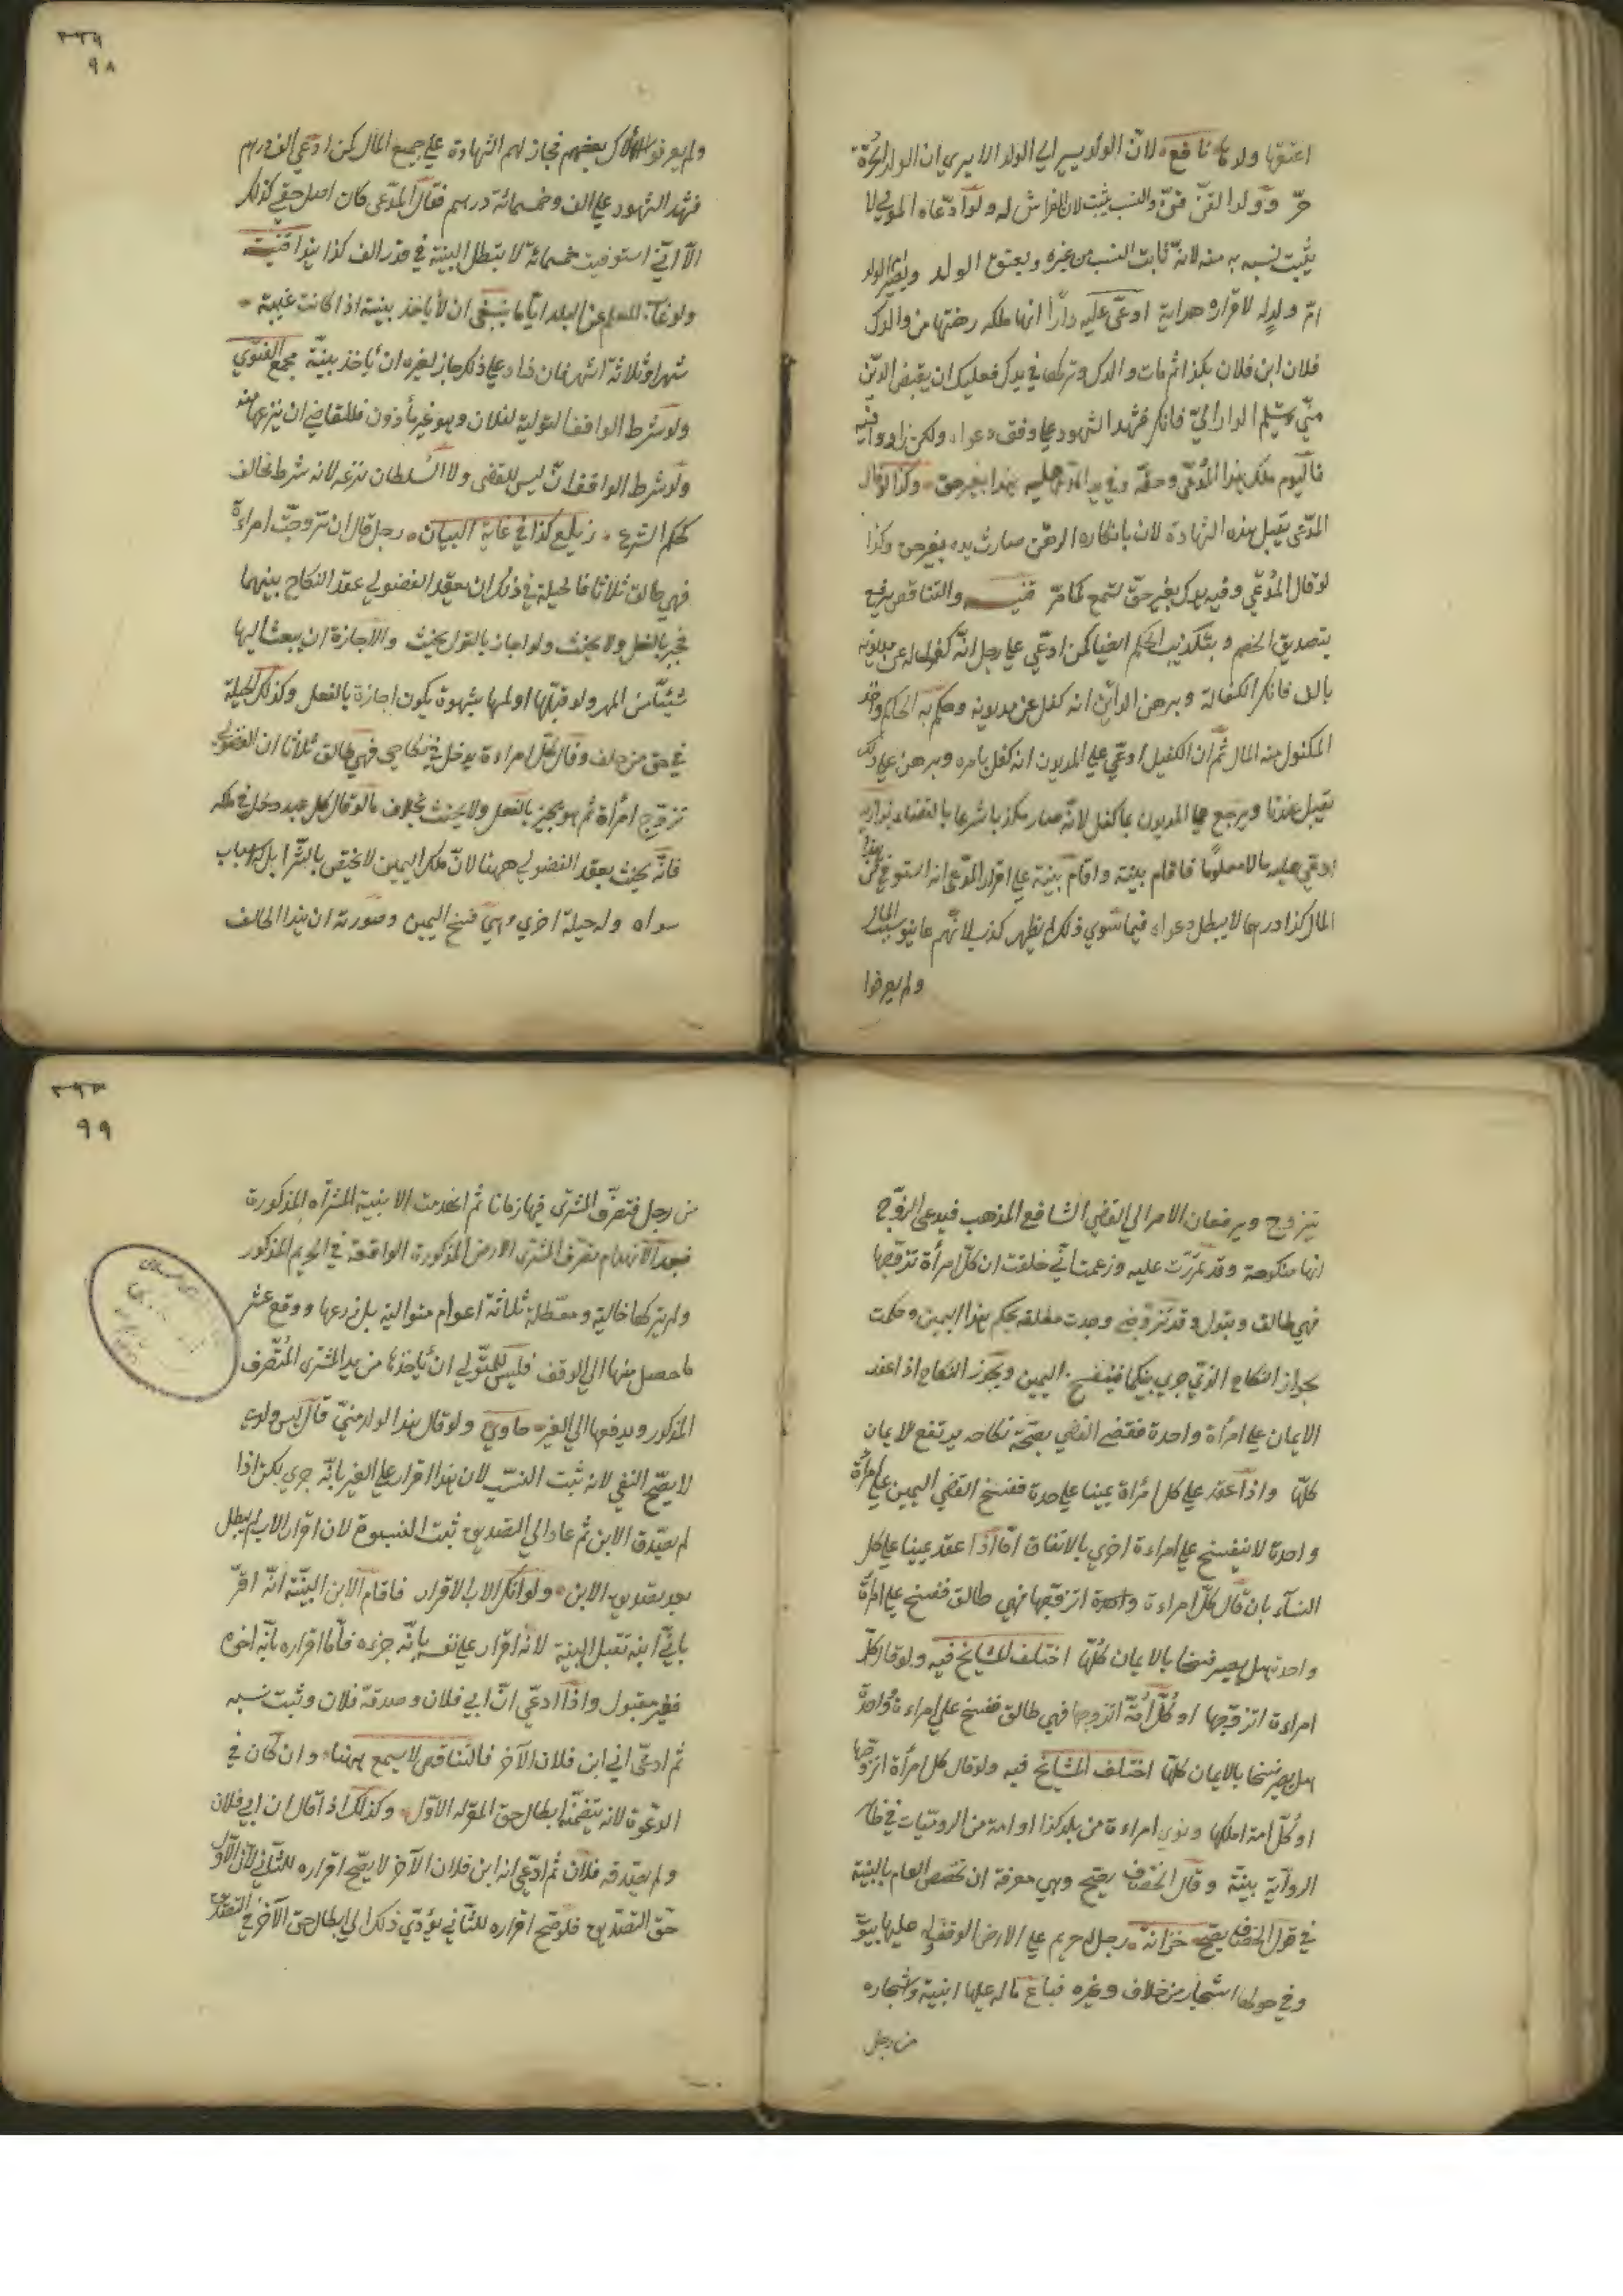 اعتقها وولدها نافع لان الولد يسير الى الولد الا يرى ان الولد الحرة
حرّ وولد القنّ قنّ والنسب يثبت لان الفراش له ولو ادّعاه المولى لا
يثبت نسبه به منه لانه ثابت النسب من غيره ويعتق الولد ويصير الولد
امّ ولد له لاقراره هداية ادعى عليه دارا انها ملكه رهنتها من والدك
فلان ابن فلان بكذا ثم مات والدك وتركها في يدك فعليك ان يقبض الدين
منّي وتسلم الدار اليّ فانكر فشهد الشهود على وفق دعواه ولكن زادوا فيه
فاليوم ملك هذا المدّعي وحقّه وفي يد المدعى عليه بهذا بغير حق وكذا لو قال
المدّعي يقبل هذه الشهادة لان بانكاره الرهن صارت يده بغير حق وكذا
لو قال المدّعي وفيه يدك بغير حقّ تسمع لما مرّ قنيه والتناقض يرفع
بتصديق الخصم وبتكذيب الحكم ايضا كمن ادّعى على رجل انّه كفل له عن مديونه
بالف فانكر الكفالة وبرهن الدائن انه كفل عن مديونه وحكم به الحاكم واخذ
المكفول منه المال ثم ان الكفيل ادّعى على المديون انه كفل بامره وبرهن على ذلك
يقبل عندنا ويرجع على المديون بما كفل لانّه صار مكذبا شرعا بالقضاء بزازيه
ادعى عليه مالا معلوما فاقام بينة واقام بيّنة على اقرار المدّعي انه استوفى من هذا
المال كذا درهما لا يبطل دعواه فيما سوى ذلك لم يظهر كذبه لانّهم عاينوا سبب المال
ولم يعرفوا
٩٨
ولم يعرفوا هلاك بعضهم فجاز لهم الشهادة على جميع المال كمن ادّعى الف درهم
فشهد الشهود على الف وخمسمائة درهم فقال المدّعي كان اصل حقي كذلك
الا انّي استوفيت خمسمائة لا يبطل البيّنة في قدر الف كذا هذا قنيه
ولو غاب المعلم عن البلد ايّاما ينبغي ان لا ياخذ بينة اذا كانت غيبة
شهرا وثلاثة اشهر فان زاد على ذلك جاز لغيره ان يأخذ بيتّة مجمع الفتوى
ولو شرط الواقف التولية لفلان وهو غير مأذون فللقاضي ان ينزعها منه
ولو شرط الواقف ان ليس للقضي ولا السّلطان نزعه لانه شرط مخالف
لحكم الشرع زيلع كذا في غاية البيان رجل قال ان تزوجت امراءة
فهي طالق ثلاثا فالحيلة في ذلك ان يعقد الفضولي عقد النكاح بينهما
فيجيز بالفعل ولا يحنث ولو اجاز بالقول يحنث والاجازة ان يبعث اليها
شيئا من المهر ولو قبّلها او لمسها بشهوة يكون اجازة بالفعل وكذلك الحيلة
في حق من حلف وقال كلّ امراءة يدخل في نكاحي فهي طالق ثلاثا ان الفضولي
تزوج امرأة ثم هو يجيز بالفعل ولا يحنث بخلاف ما لو قال كل عبد دخل في ملكه
فانّه يحنث بعقد الفضولي ههنا لانّ ملك اليمين لا يختص بالشّرا بل له اسباب
سواه وله حيلة اخرى وهي فسخ اليمين وصورته ان هذا الحالف
يتزوج ويرفعان الامر الى القضي الشافع المذهب فيدعي الزوج
انها منكوحة وقد تمرّدت عليه وزعمت انّي حلفت ان كلّ امرأة تزوّجها
فهي طالق ويقول وقد تزوجني وجدت مطلقه بحكم هذا اليمين وحكمت
بجواز النكاح الذي جرى بينكما فينفسخ اليمين ويجوز النكاح اذا عقد
الايمان على امرأة واحدة فقضى القضي بصحّة نكاحه يرتفع الايمان
كلّها واذا عقد على كل امرأة يمينا على حدة ففسخ القضي اليمين على امرأة
واحدة لا ينفسخ على امراءة اخرى بالاتفاق امّا اذا عقد يمينا على كل
النساء بان قال كلّ امراءة واحدة اتزوّجها فهي طالق ففسخ على امرأة
واحدة هل يصير فسخا بالايمان كلّها اختلف المشايخ فيه ولو قال كلّ
امراءة اتزوّجها او كلّ امّة اتزوجها فهي طالق ففسخ على امراءة واحدة
هل يصير فسخا بالايمان كلّها اختلف المشايخ فيه ولو قال كل امرأة اتزوّجها
او كلّ امة املكها ونوى امراءة من بلد كذا او امة من الروميّات في ظاهر
الرواية بينة وقال الخصّاف يصحّ وهي معرفة ان تخصص العام بالنية
في قول الخصّاف يصحّ خزانة رجل له حريم على الارض الوقفيه عليها بيوة
وفي حولها اشجار من خلاف وغيره فباع ما له عليها ابنية واشجاره
من رجل
٩٩
من رجل فتصرّف المشتري فيها زمانا ثم انهدمت الابنية المشتراه المذكورة
فبعد الانهدام تصرّف المشتري الارض المذكورة الواقعة في الحريم المذكور
ولم يتركها خالية ومعطلة ثلاثة اعوام متوالية بل زرعها ووقع عشر
ما حصل منها الى الوقف فليس للمتولي ان يأخذها من يد المشتري المتصرف
المذكور ويدفعها الى الغير حاوي ولو قال هذا الولد منّي قال ليس ولدي
لا يصحّ النفي لانه ثبت النسب لان هذا اقرار على الغير بانّه جرى بكن اذا
لم يصدّق الابن ثم عاد الى التصديق ثبت النسبوة لان اقرار الاب لم يبطل
بعد بتصديق الابن ولو انكر الاب الاقرار فاقام الابن البيّنة انّه اقرّ
بانّي ابنه تقبل البينة لانه اقرار على نفسه بانّه جزءه فأمّا اقراره بانّه اخوه
فغير مقبول واذا ادعى انّ ابي فلان وصدقه فلان وثبت نسبه
ثم ادعى اني ابن فلان الآخر فالتناقض لا يسمع ههنا وان كان في
الدعوة لانه يتضمّن ابطال حق المقرّ له الاوّل وكذلك اذا قال ان ابي فلان
ولم يصدقه فلان ثم ادّعى انه ابن فلان الآخر لا يصحّ اقراره للثاني لانّ الاوّل
حق التصديق فلو صحّ اقراره للثاني يؤدّي ذلك الى ابطال حق الآخر في التصديق